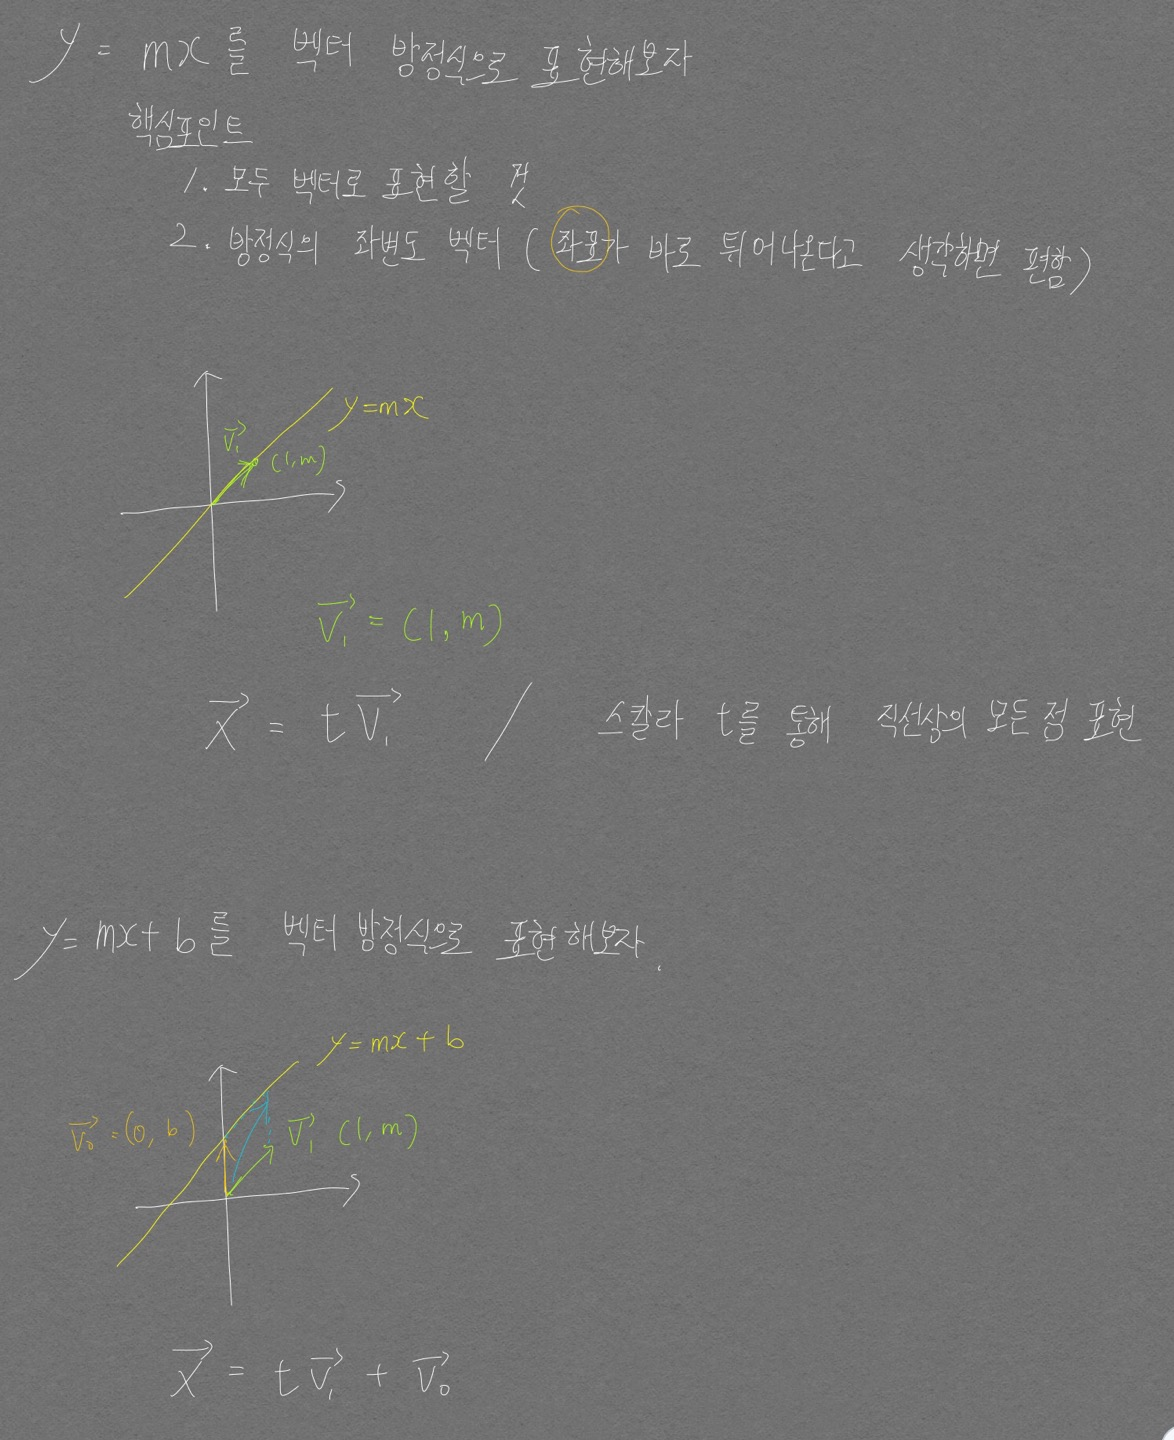 y = mx를 벡터 방정식으로 표현해보자
핵심포인트
1. 모두 벡터로 표현할 것
2. 방정식의 좌변도 벡터 (좌표가 바로 튀어나온다고 생각하면 편함)
y=mx
v₁⃗ (1,m)
v₁⃗ = (1, m)
x⃗ = t v₁⃗ / 스칼라 t를 통해 직선상의 모든 점 표현
y = mx + b 를 벡터 방정식으로 표현해보자.
y = mx + b
v₀⃗ = (0, b) v₁⃗ (1, m)
x⃗ = t v₁⃗ + v₀⃗